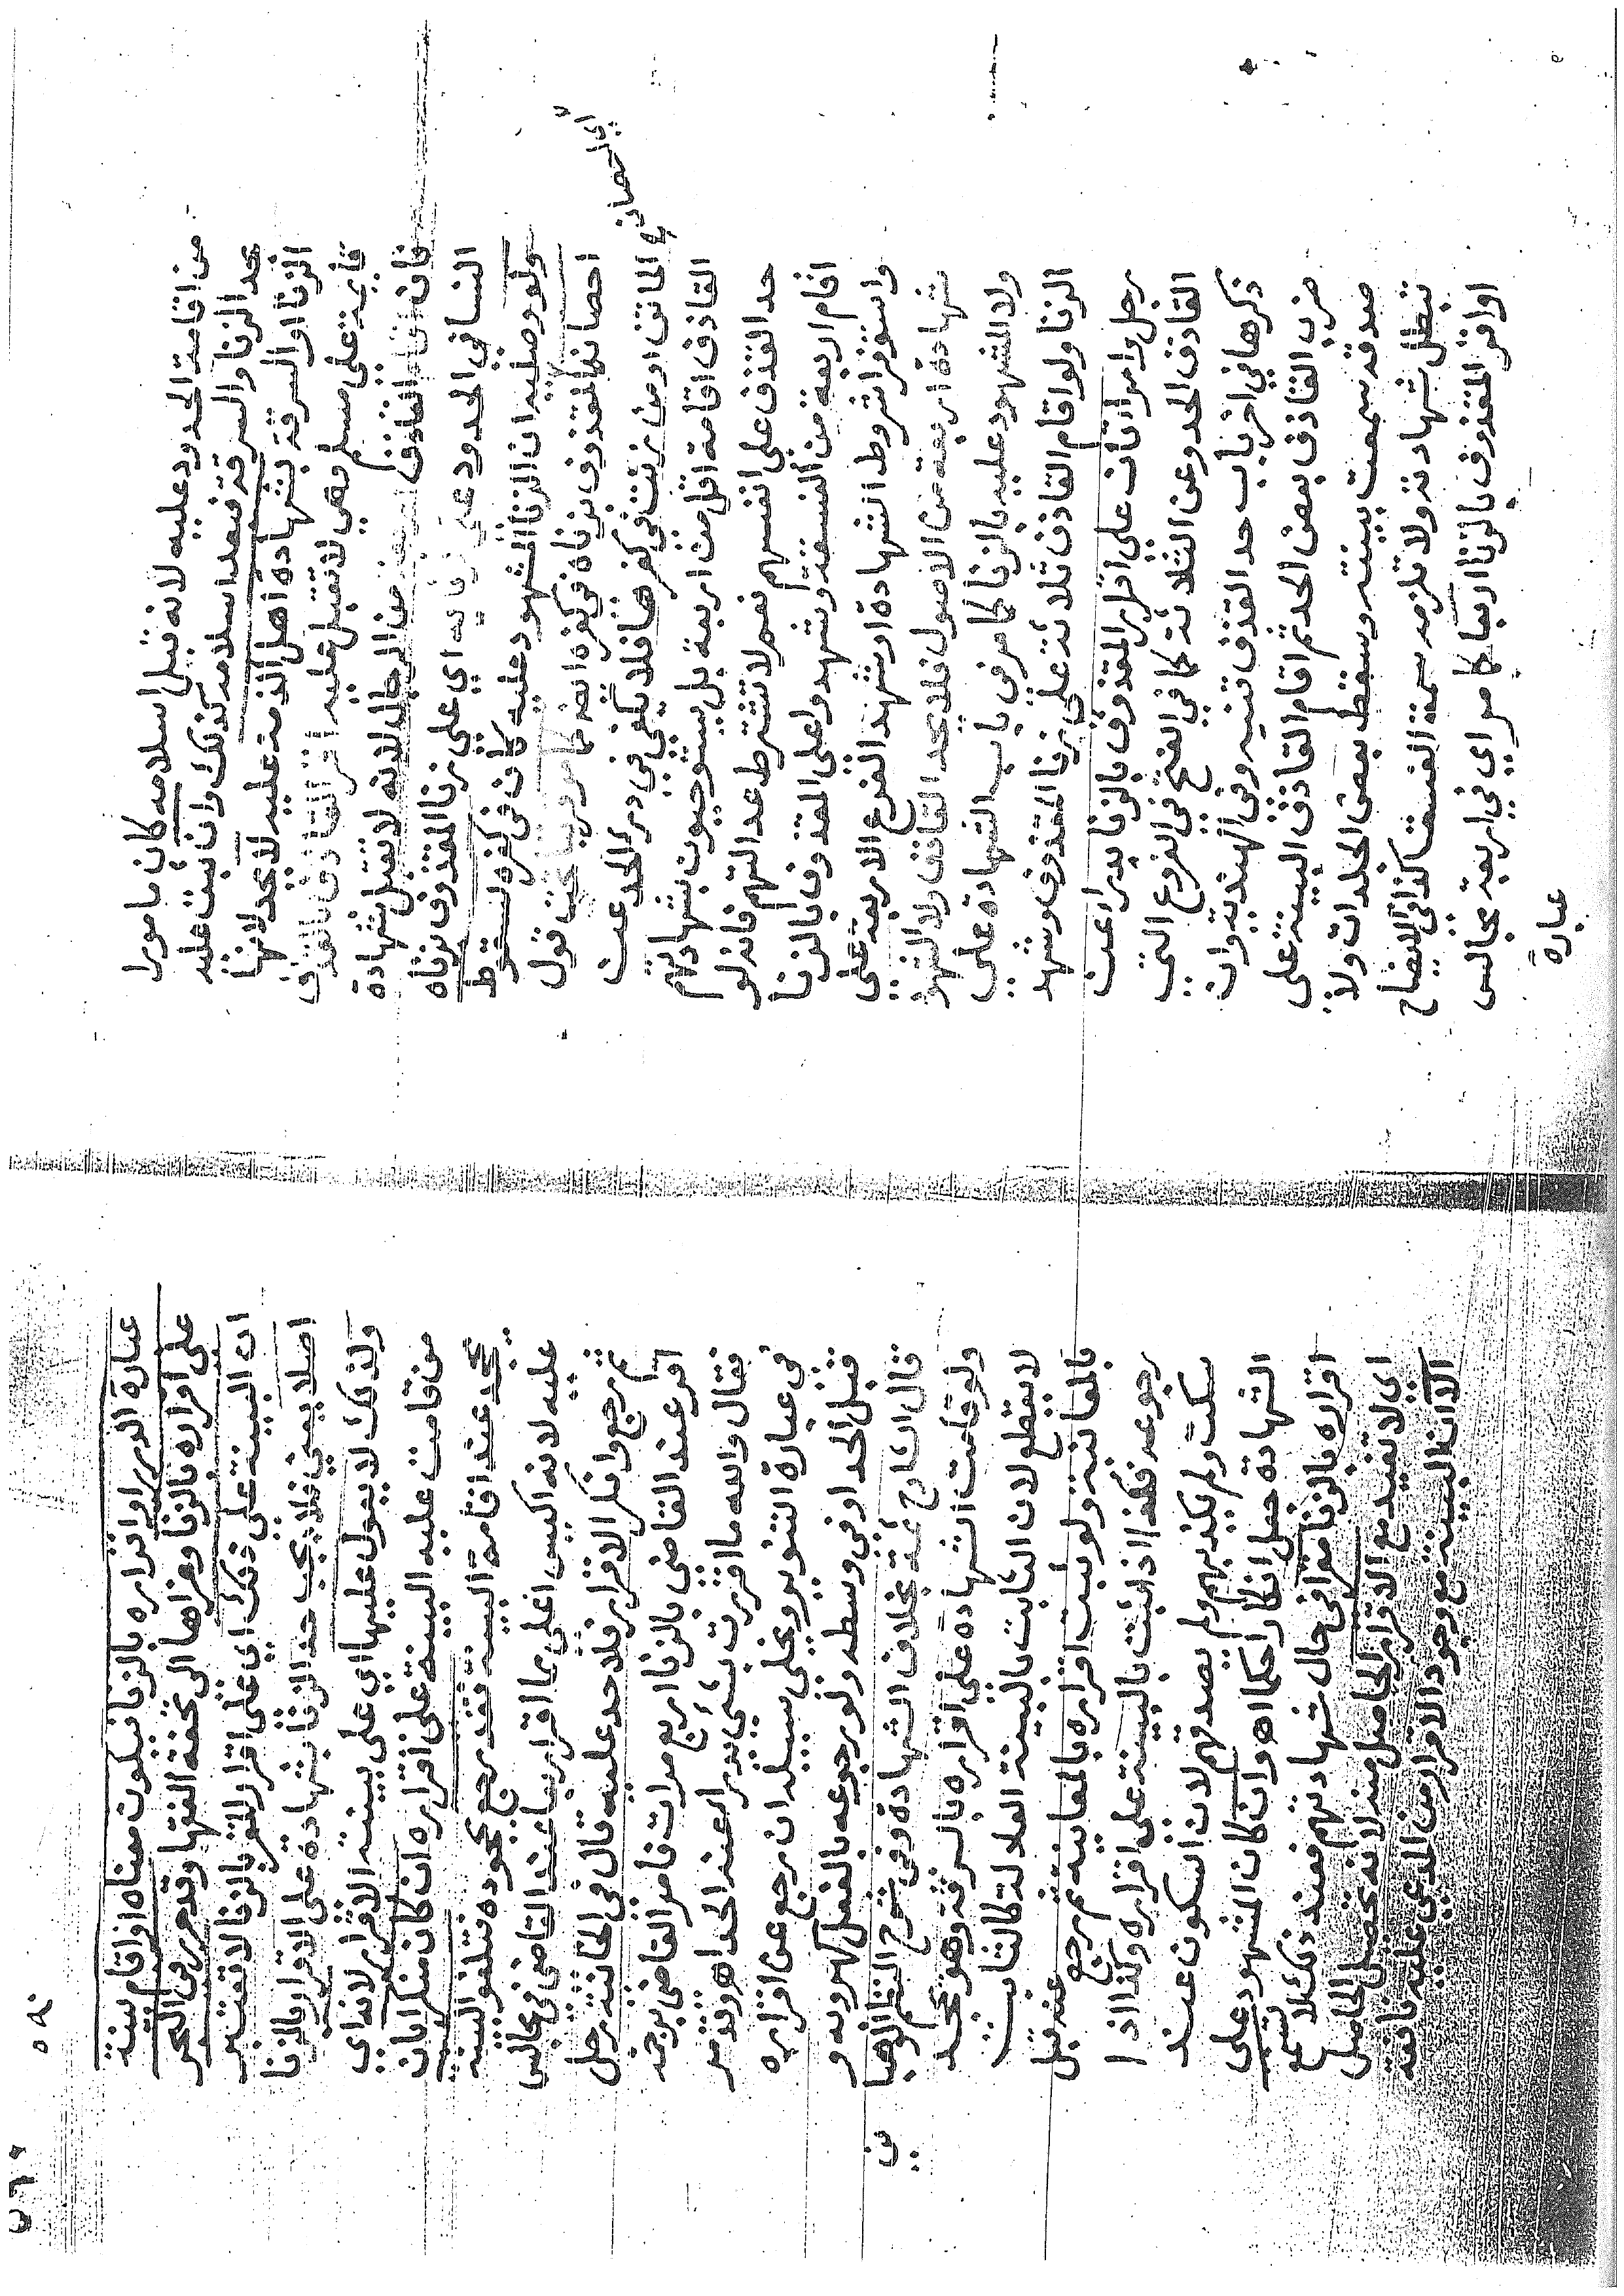 من اقامة الحدود عليه لانه قبل اسلامه كان مامورا
بحد الزنا والسرقة فبعد اسلامه كذلك وان ثبت عليه
الزنا او السرقة بشهادة اهل الذمة عليه لا يحد لانها
قايمة على مسلم وهي لا تقبل عليه اقر القاذف بالقذف
فان اقام القاذف من الرجال لانه لا تقبل شهادة
النسا في الحدود على زناه اي على زنا المقذوف زناه
ولو وصلية ان الزنا المشهود عليه كان في كفره لسقوط
احصانه المقذوف بزناه في كفره ايضا كما مر قريبا تحت قول
الماتن او من زنت في كفرها فلا يكفي في درء الحد عن
اي احصانه
القاذف اقامة اقل من اربعة بل يستوجبون بشهادتهم
حد القذف على انفسهم نعم لا تشترط عدالتهم فانه لو
اقام اربعة من الفسقة وشهدوا على المقذوف بالزنا
واستوفوا شروط الشهادة او شهد الفرع الاربعة على
شهادة اربعة من الاصول فلا يحد القاذف ولا الشهود
ولا المشهود عليه بالزنا كما مر في باب الشهادة على
الزنا ولو اقام القاذف ثلاثة على زنا المقذوف وشهد
رجل وامراتان على اقرار المقذوف بالزنا يدرا عن
القاذف الحد وعن الثلاثة كما في الفتح في الفروع التي
ذكرها في اخر باب حد القذف تتمة وفي الهندية وان
ضرب القاذف بعض الحد ثم اقام القاذف البينة على
صدقه سمعت بينته وسقط بعض الجلدات ولا
تبطل شهادته ولا تلزمه سمة الفسق كذا في الايضاح
او اقر المقذوف بالزنا اربعا كما مر اي في اربعة مجالس
عبارة
٥٦٠
٨٥
عبارة الدرر او اقراره بالزنا فيكون معناه او اقام بينة
على اقراره بالزنا وعزاها الى تحفة الفقها وقد حرر في البحر
ان البينة على ذلك اي على اقرار المقر بالزنا لا تعتبر
اصلا يعني فلا يجب حد الزنا بشهادة على الاقرار بالزنا
ولذلك لا يعول عليها اي على بينة الاقرار لانه اي
من قامت عليه البينة على اقراره ان كان منكرا بان
جحد عند اقامة البينة فقد رجع بجحوده فتلغو البينة
عليه لانه اكيس اعلى مما اقر اربعا عند القاضي في مجالس
ثم رجع وانكر الاقرار فلا حد عليه قال في الخانية رجل
اقر عند القاضي بالزنا اربع مرات فامر القاضي برجمه
فقال والله ما اقررت بشي يدرا عنه الحد اهـ وقد مر
في عبارة التنوير ويخلى سبيله ان رجع عن اقراره
قبل الحد او في وسطه ولو رجوعه بالفعل كهروبه و
قال الشارح ثمة بخلاف الشهادة وفي شرح النظم الوهبا
ني
ولو قامت الشهادة على اقراره بالسرقة وهو يجحد
لا يقطع لان الثابت بالبينة العادلة كالثابت
بالمعاينة ولو ثبت اقراره بالمعاينة ثم رجع عنه قبل
رجوعه فكذا اذا ثبت بالبينة على اقراره وكذا اذا
سكت ولم يكذبهم ولم يصدقهم لان السكوت عند
الشهادة جعل انكارا حكما اهـ وان كان المشهود على
اقراره بالزنا مقرا في حال شهادتهم فعند ذلك لا تسمع
اي لا تفيد مع الاقرار الحاصل منه لانه تحصيل الحاصل
الا ان البينة مع وجود الاقرار من المدعى عليه نافعة